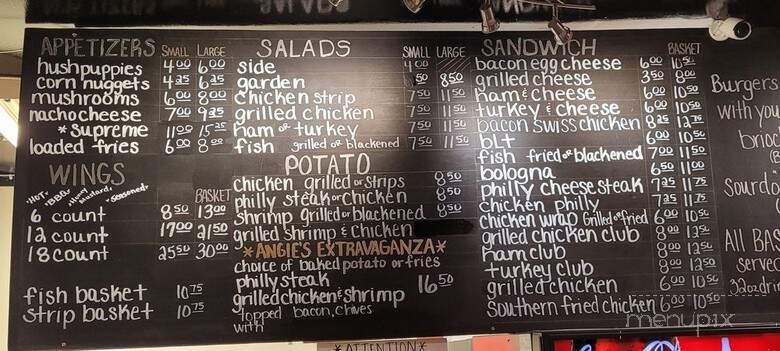 APPETIZERS SMALL LARGE
hushpuppies 4.00 6.00
corn nuggets 4.25 6.25
mushrooms 6.00 8.00
nacho cheese 7.00 9.25
*supreme 11.00 15.25
loaded fries 6.00 8.00
WINGS
"HOT" "BBQ" "Honey Mustard" "seasoned"
BASKET
6 count 8.50 13.00
12 count 17.00 21.50
18 count 25.50 30.00
fish basket 10.75
strip basket 10.75
SALADS SMALL LARGE
side 4.00
garden 50 8.50
chicken strip 7.50 11.50
grilled chicken 7.50 11.50
ham or turkey 7.50 11.50
fish grilled or blackened 7.50 11.50
POTATO
chicken grilled or strips 8.50
philly steak or chicken 8.50
shrimp grilled or blackened 8.50
grilled shrimp & chicken
*ANGIE'S EXTRAVAGANZA*
choice of baked potato or fries
philly steak 16.50
grilled chicken & shrimp
Topped bacon, chives
with
*ATTENTION*
SANDWICH BASKET
bacon egg cheese 6.00 10.50
grilled cheese 3.50 8.00
ham & cheese 6.00 10.50
turkey & cheese 6.00 10.50
bacon swiss chicken 8.25 12.75
blt 6.00 10.50
fish fried or blackened 7.00 11.50
bologna 6.50 11.00
philly cheese steak 7.25 11.75
chicken philly 7.25 11.75
chicken wrap Grilled or fried 6.00 10.50
grilled chicken club 8.00 12.50
ham club 8.00 12.50
turkey club 8.00 12.50
grilled chicken 6.00 10.50
southern fried chicken 6.00 10.50
Burgers
with you
brioc
Sourd
All BAS
served
32oz dri
menupix